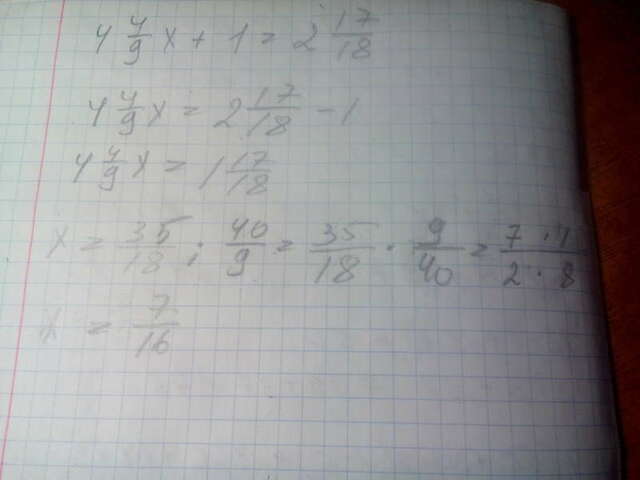 4 4/9 x + 1 = 2 17/18
4 4/9 x = 2 17/18 - 1
4 4/9 x = 1 17/18
x = 35/18 : 40/9 = 35/18 · 9/40 = 7 · 1/2 · 8
x = 7/16